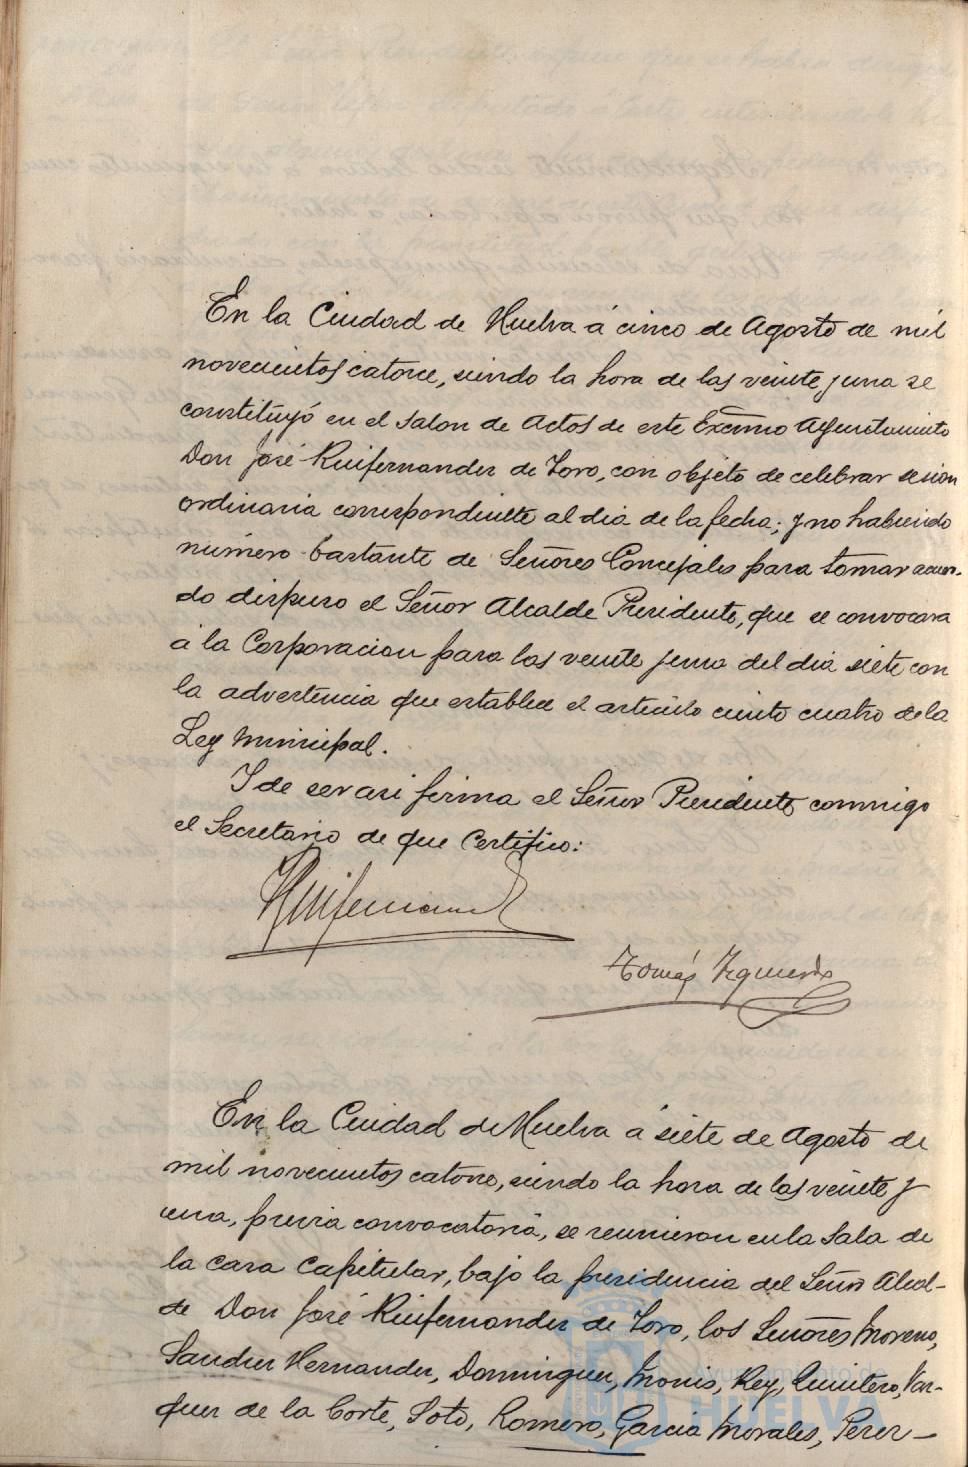 En la Ciudad de Huelva á cinco de Agosto de mil
novecientos catorce, siendo la hora de las veinte y una se
constituyó en el Salon de Actos de este Excmo Ayuntamiento
Don José Ruifernandez de Toro, con objeto de celebrar sesion
ordinaria correspondiente al dia de la fecha; y no habiendo
número bastante de Señores Concejales para tomar acuer-
do dispuso el Señor Alcalde Presidente, que se convocara
á la Corporacion para las veinte y una del dia siete con
la advertencia que establece el artículo ciento cuatro de la
Ley Municipal.
Y de ser asi firma el Señor Presidente conmigo
el Secretario de que Certifico:
Ruifernandez
Tomás Izquierdo
En la Ciudad de Huelva á siete de Agosto de
mil novecientos catorce, siendo la hora de las veinte y
una, previa convocatoria, se reunieron en la Sala de
la casa Capitular, bajo la presidencia del Señor Alcal-
de Don José Ruifernandez de Toro, los Señores Moreno,
Sanchez Hernandez, Dominguez, Monis, Rey, Quintero, Vaz-
quez de la Corte, Soto, Romero, Garcia Morales, Perez
Ayuntamiento de
HUELVA